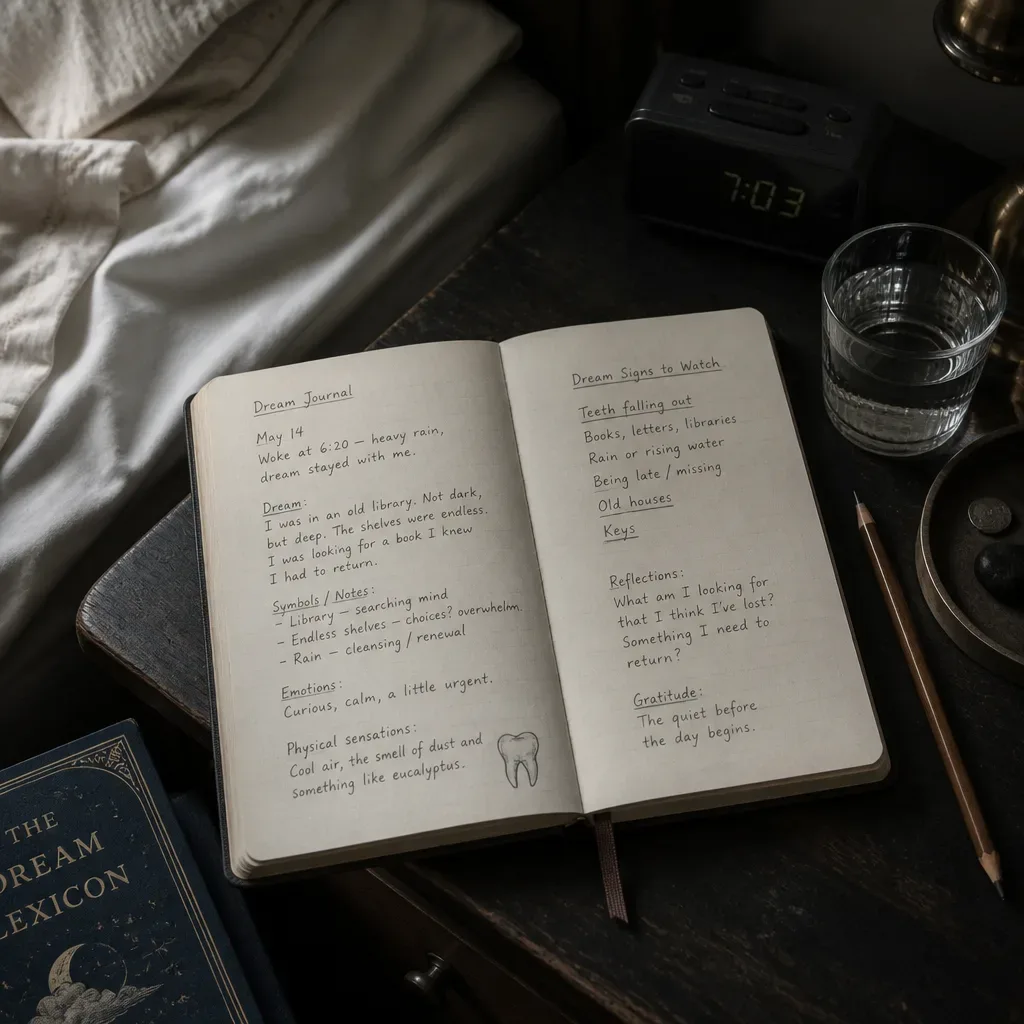 Dream Journal
May 14
Woke at 6:20 – heavy rain,
dream stayed with me.
Dream:
I was in an old library. Not dark,
but deep. The shelves were endless.
I was looking for a book I knew
I had to return.
Symbols / Notes:
- Library – searching mind
- Endless shelves – choices? overwhelm.
- Rain – cleansing / renewal
Emotions:
Curious, calm, a little urgent.
Physical sensations:
Cool air, the smell of dust and
something like eucalyptus.
Dream Signs to Watch
Teeth falling out
Books, letters, libraries
Rain or rising water
Being late / missing
Old houses
Keys
Reflections:
What am I looking for
that I think I've lost?
Something I need to
return?
Gratitude:
The quiet before
the day begins.
7:03
THE
DREAM
LEXICON